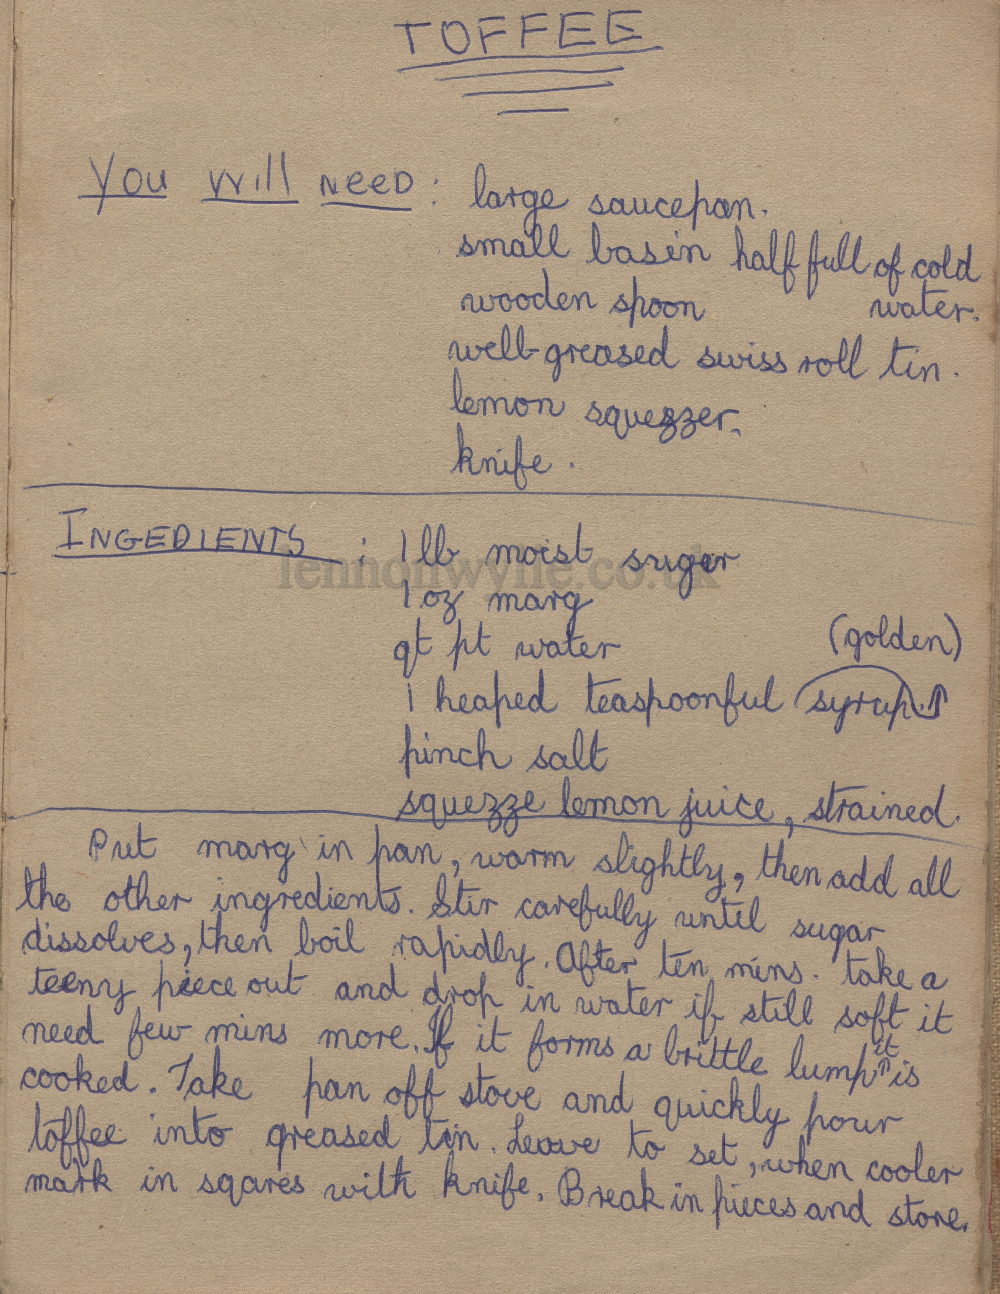 TOFFEE
You Will NEED : large saucepan.
small basin half full of cold
wooden spoon water.
well-greased swiss roll tin.
lemon squezzer.
knife.
INGEDIENTS : 1 lb moist sugar
lennonwylie.co.uk
1 oz marg
qt pt water (golden)
1 heaped teaspoonful syrup.↑
pinch salt
squezze lemon juice, strained.
Put marg in pan, warm slightly, then add all
the other ingredients. Stir carefully until sugar
dissolves, then boil rapidly. After ten mins. take a
teeny piece out and drop in water if still soft it
need few mins more. If it forms a brittle lump it is
cooked. Take pan off stove and quickly pour
toffee into greased tin. Leave to set, when cooler
mark in sqares with knife. Break in pieces and store.